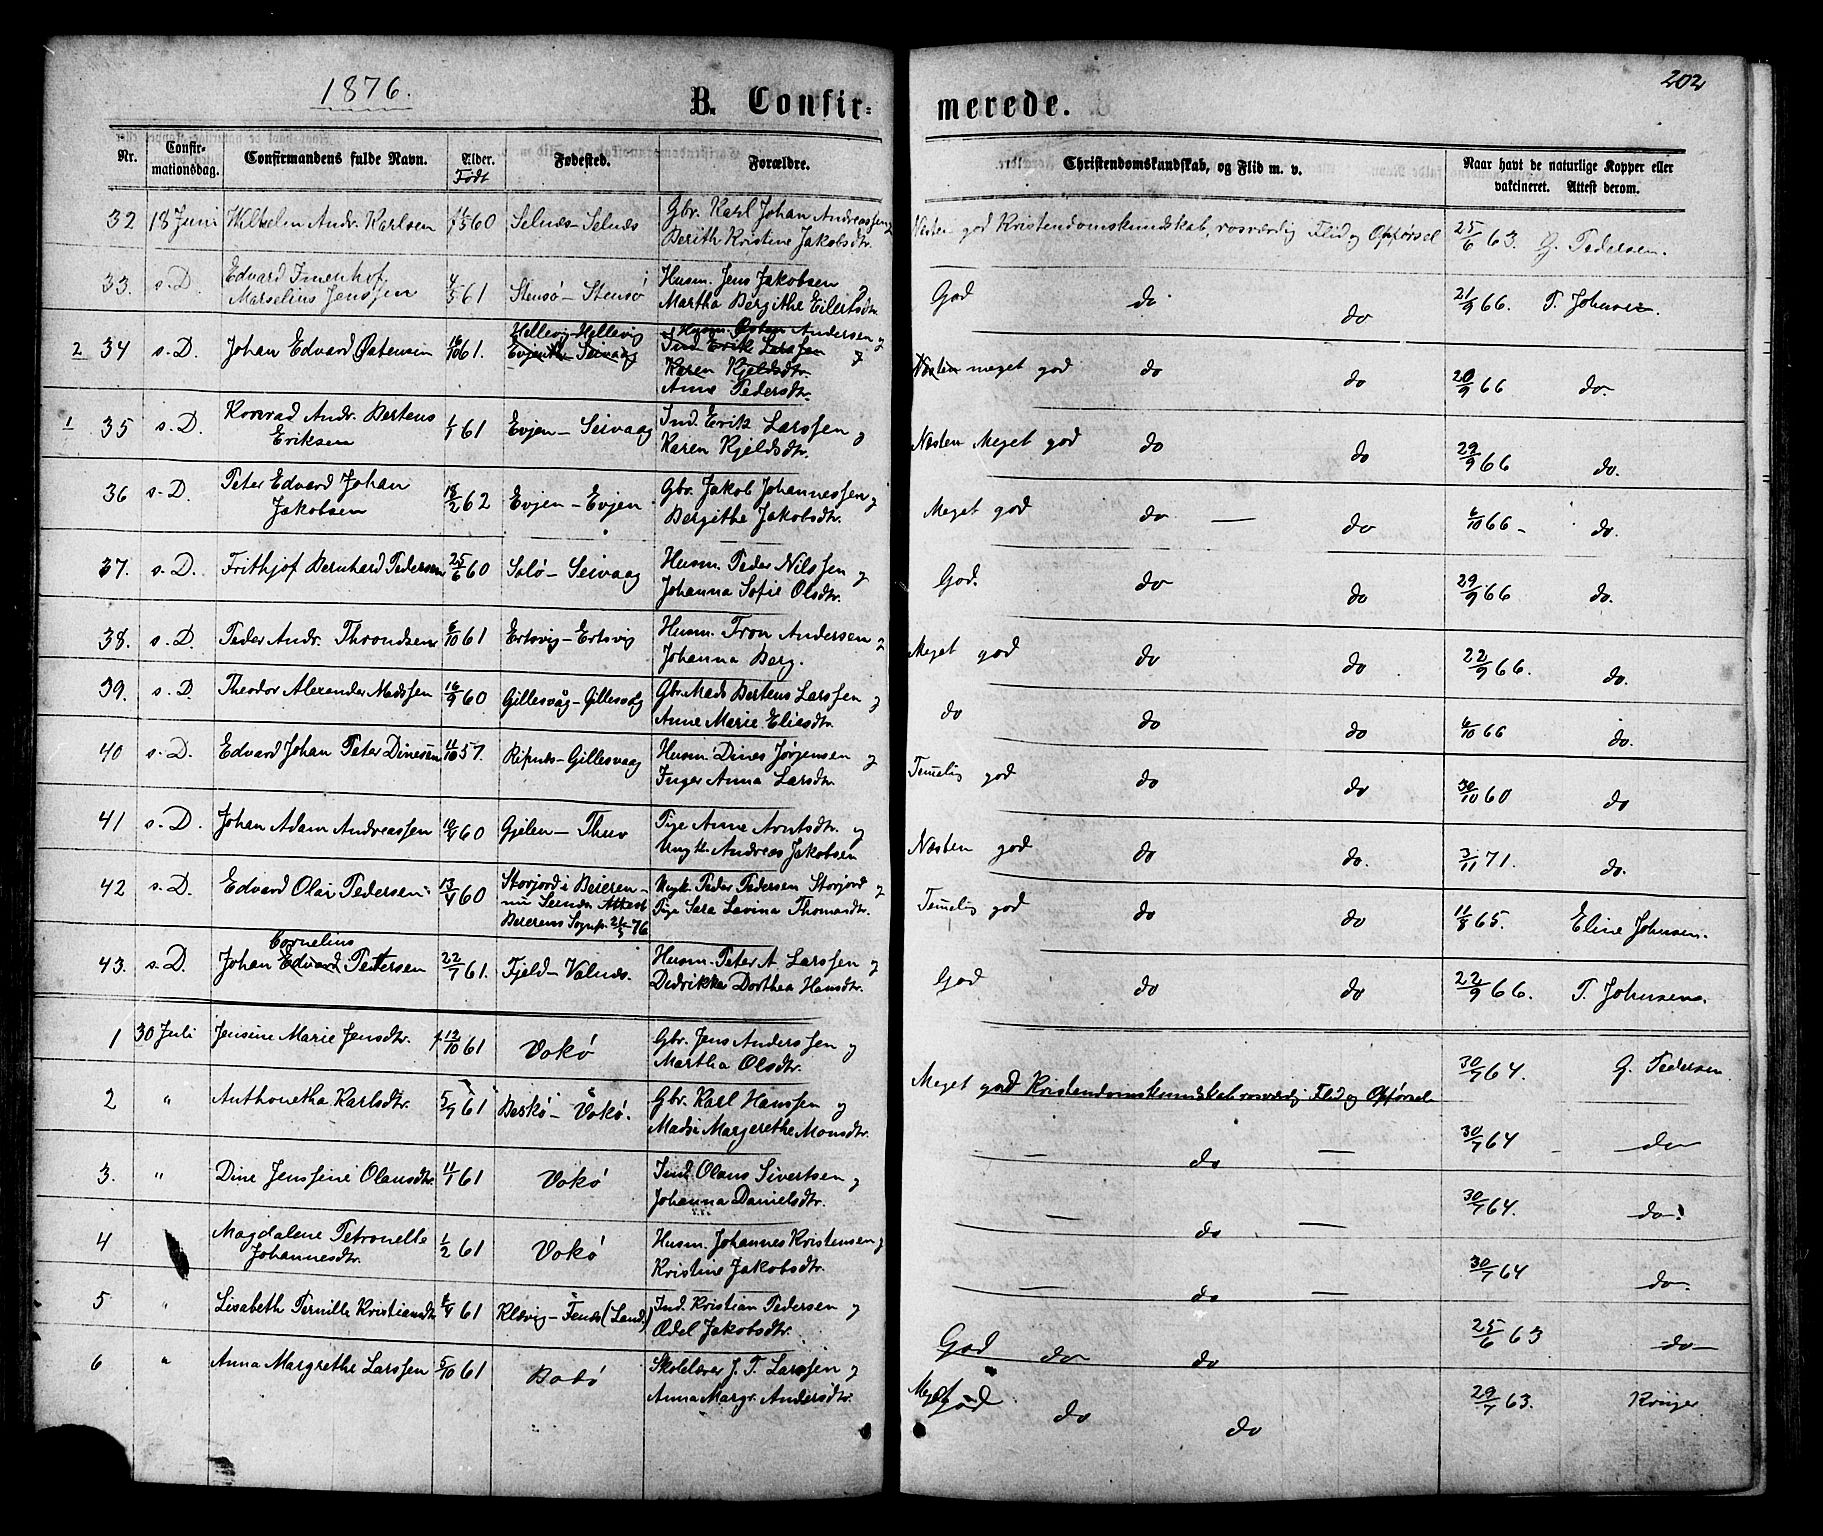 1876.
202
B. Confirmerede.
Nr. Confirmationsdag. Confirmandens fulde Navn. Alder. Født Fødested. Forældre. Christendomskundskab, og Flid m. v. Naar havt de naturlige Kopper eller vakcineret. Attest derom.
32 18 Juni Wilhelm Andr. Karlsen 60 Selnæs - Selnæs Gbr. Karl Johan Andreassen og
Berith Kristine Jakobsdtr. Næsten god Kristendomskundskab, rosværdig Flid og Opførsel 25/6 63. G. Pedersen.
33. s. D. Edvard Imenhof
Marselius Jenssen 4/5 61 Stensø - Stensø Husm. Jens Jakobsen og
Martha Bergithe Eilertsdtr. God do do 21/9 66. T. Johnsen.
2 34 s. D. Johan Edvard Østensen 16/10 61. Hellevig Hellevig
Evjen - Seivaag Husm. Østen Andersen og
Ind. Erik Larssen og
Karen Kjeldsdtr.
Anne Pedersdtr. Næsten meget god do do 20/9 66 do.
1 35 s. D. Konrad Andr. Bertens
Eriksen 61 Evjen - Seivaag Ind. Erik Larssen og
Karen Kjeldsdtr. Næsten Meget god do do 22/9 66 do.
36 s. D. Peter Edvard Johan
Jakobsen 18/2 62 Evjen - Evjen Gbr. Jakob Johannessen og
Bergithe Jakobsdtr. Meget god do — do 6/10 66 - do.
37. s. D. Frithjof Bernhard Pedersen 25/6 60 Solø - Seivaag Husm. Peder Nilssen og
Johanna Sofie Olsdtr. God. do do 29/9 66 do.
38. s. D. Peder Andr. Throndsen 6/10 61 Ertsvig - Ertsvig Husm. Tron Andersen og
Johanna Berg. Meget god do do 22/9 66. do.
39. s. D. Theodor Alexander Madssen 16/9 60 Gillesvåg - Gillesvåg Gbr. Mads Bertens Larssen og
Anne Marie Eliasdtr. do do do 6/10 66 do.
40 s. D. Edvard Johan Peter Dinesen 11/10 57. Ripnæs - Gillesvaag Husm. Dines Jørgensen og
Inger Anna Larsdtr. Temelig god do do 30/10 60 do
41 s. D. Johan Adam Andreassen 10/4 60 Gjelen - Thuv Pige Anne Arntsdtr. og
Ungk. Andreas Jakobsen Næsten god do do. 3/11 71. do.
42 s. D. Edvard Olai Pedersen 13/4 60 Storjord i Beieren -
nu Attest
Beierens Sognepr. 76 Ungk. Peder Pedersen Storjord og
Pige Sara Lavina Thomasdtr. Temelig god do do 11/8 65. Eline Johnsen.
43. s. D. Cornelius
Johan Edvard Pettersen 22/7 61. Fjeld - Valnæs. Husm. Peter A Larssen og
Didrikke Dorthea Hansdtr. God do do 22/9 66. T. Johnsen.
1 30 Juli Jensine Marie Jensdtr. 12/10 61 Vokø Gbr. Jens Anderssen og
Martha Olsdtr. Meget god Kristendomskundskab rosværdig Flid og Opførsel 30/7 64. G. Pedersen
2 " Anthonetha Karlsdtr. 5/9 61 Beskø - Vokø. Gbr. Karl Hanssen og
Madsi Margrethe Monsdtr. — do — 30/7 64 do
3. " Dine Jenssine Olausdtr. 11/1 61 Vokø Ind. Olaus Sivertsen og
Johanna Danielsdtr. — do — 30/7 64. do.
4 Magdalene Petronelle
Johannesdtr. 1/2 61 Vokø Husm. Johannes Kristensen og
Kristine Jakobsdtr. — do — 30/7 64 do.
5 " Lisabeth Pernille Kristiansdtr 61 Klævig - Fenes (Land.) Ind. Kristian Pedersen og
Edel Jakobsdtr. God do do 25/6 63 do
6 " Anna Margrethe Larssen 5/10 61 Bodø Skolelærer J. P. Larssen og
Anna Margr. Andersdtr. Meget God do do 29/7 63. Krüger